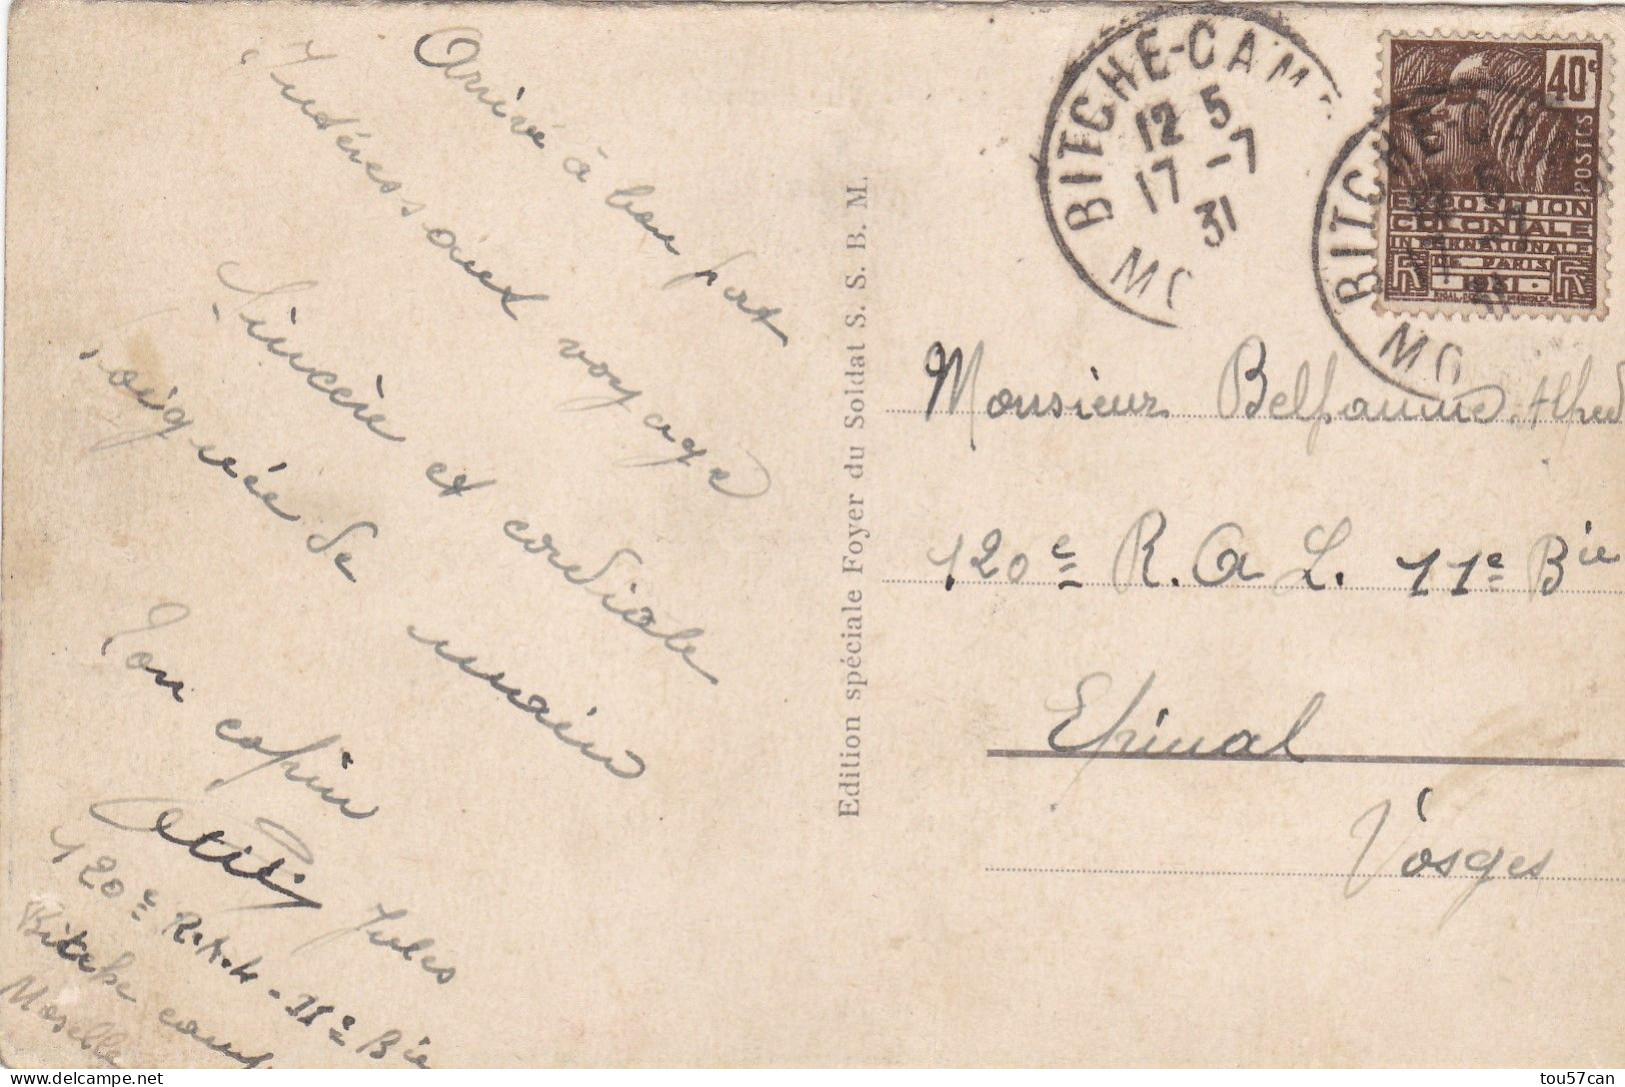 Arrivé à bon port
Intéressant voyage
Sincère et cordiale
poignée de main
Ton copin
Jules
120e R.A.L - 11e Bie
Bitche camp
Moselle
Edition spéciale Foyer du Soldat S. S. B. M.
BITCHE-CAMP
12 5
17 -7
31
MO
40c
POSTES
EXPOSITION
COLONIALE
INTERNATIONALE
DE PARIS
RF 1931 RF
BITCHE CAM
MO
Monsieur Belhomme Alfred
120e R.A L. 11e Bie
Epinal
Vosges
tou57can